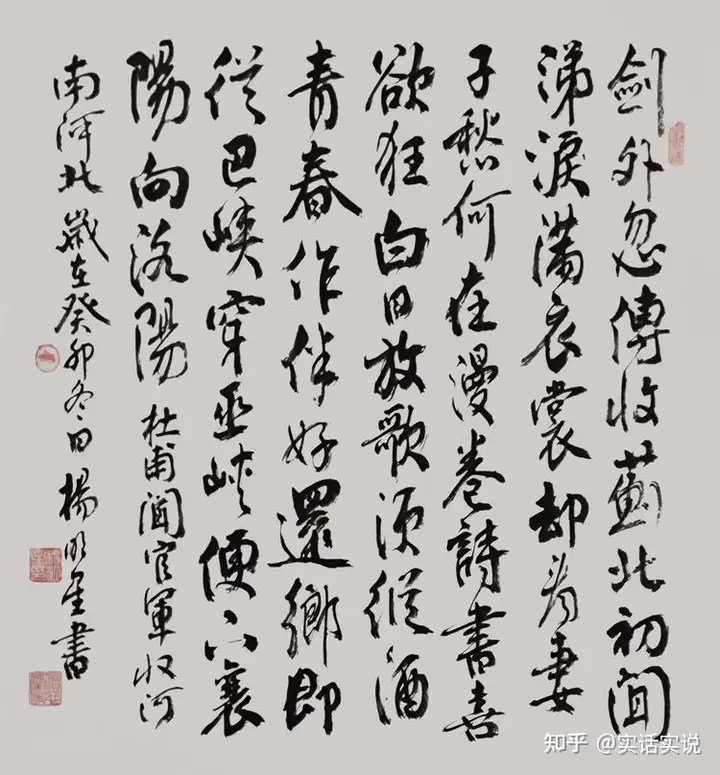 劍外忽傳收薊北初聞
涕淚滿衣裳却看妻
子愁何在漫卷詩書喜
欲狂白日放歌須縱酒
青春作伴好還鄉即
從巴峽穿巫峽便下襄
陽向洛陽 杜甫聞官軍收河
南河北 歲在癸卯冬日楊明星書
知乎 @实话实说